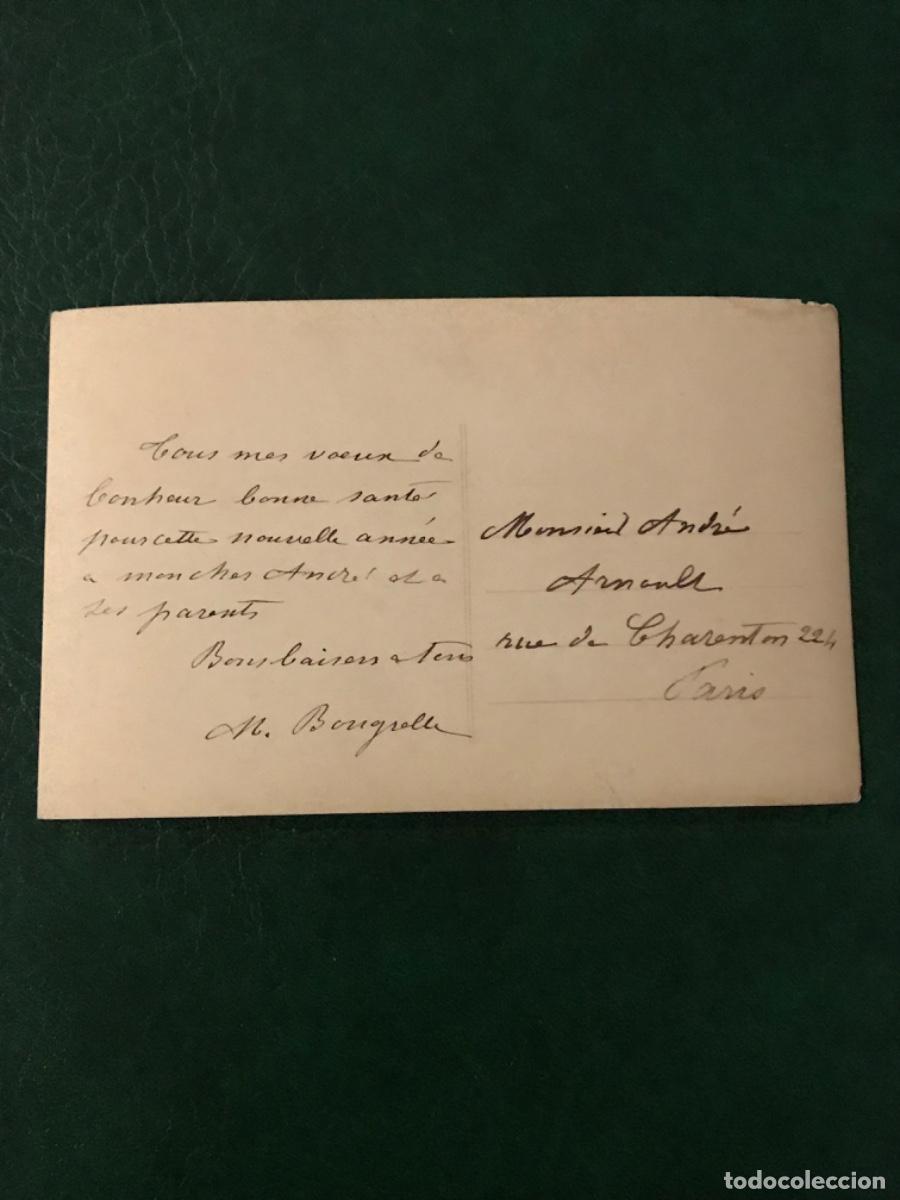 Tous mes voeux de
bonheur bonne santé
pour cette nouvelle année
a mon cher André et a
ses parents
Bons baisers a tous
M. Bougrelle
Monsieur André
Arnoult
rue de Charenton 224
Paris
todocoleccion